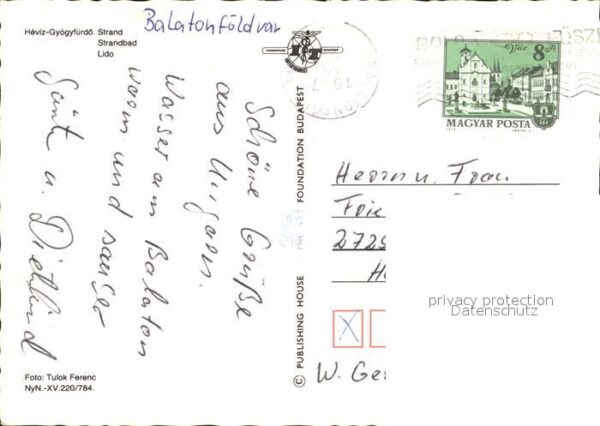 Balatonföldvar
Hévíz-Gyógyfürdő. Strand
Strandbad
Lido
Schöne Grüße
aus Ungarn.
Wasser am Balaton
warm und sauber
u. Dietlind
Foto: Tulok Ferenc
NyN.-XV.220/784.
© PUBLISHING HOUSE
FOUNDATION BUDAPEST
Vác 8 Ft
MAGYAR POSTA
Herrn u. Frau
2725
privacy protection
Datenschutz
W. Ger